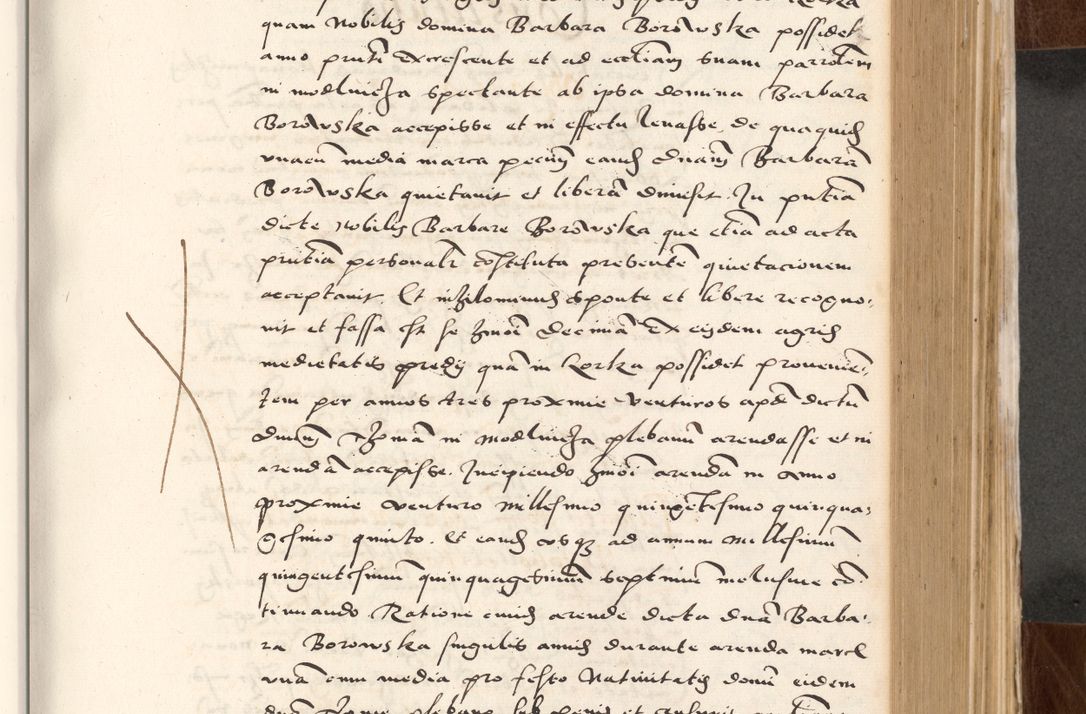 quam Nobilis domina Barbara Borowska possidet
anno pnti Excrescente et ad ecctiam suam parrotem
in modlnicza spectante ab ipsa domina Barbara
Borowska accepisse et in effectu levasse, de qua quid
unacu media marca pecuny eand dnam Barbara
Borowska quietavit et libera dimisit. In pntia
dicte Nobilis Barbare Borowska que etia ad acta
pntia personalr costituta presente quietacionem
acceptavit. Et nihilominus sponte et libere recogno-
vit et fassa est se hmoi decima Ex eisdem agris
medietatis predij qua in Korka possidet provenie-
tem per annos tres proxime venturos apd dictu
dnum Thoma in Modlnicza plebanu arendasse et in
arenda accepisse. Incipiendo hmoi arenda in Anno
proxime venturo Millesimo quingetesimo quinqua-
gesimo quinto. Et eand usq ad annum Millesimum
quingentesimum quinquagesimum septimum inclusive co-
tinuando Ratione cuius arende dicta dna Barba-
ra Borowska singulis annis durante arenda marca
una cum media pro festo Nativitatis domi eidem